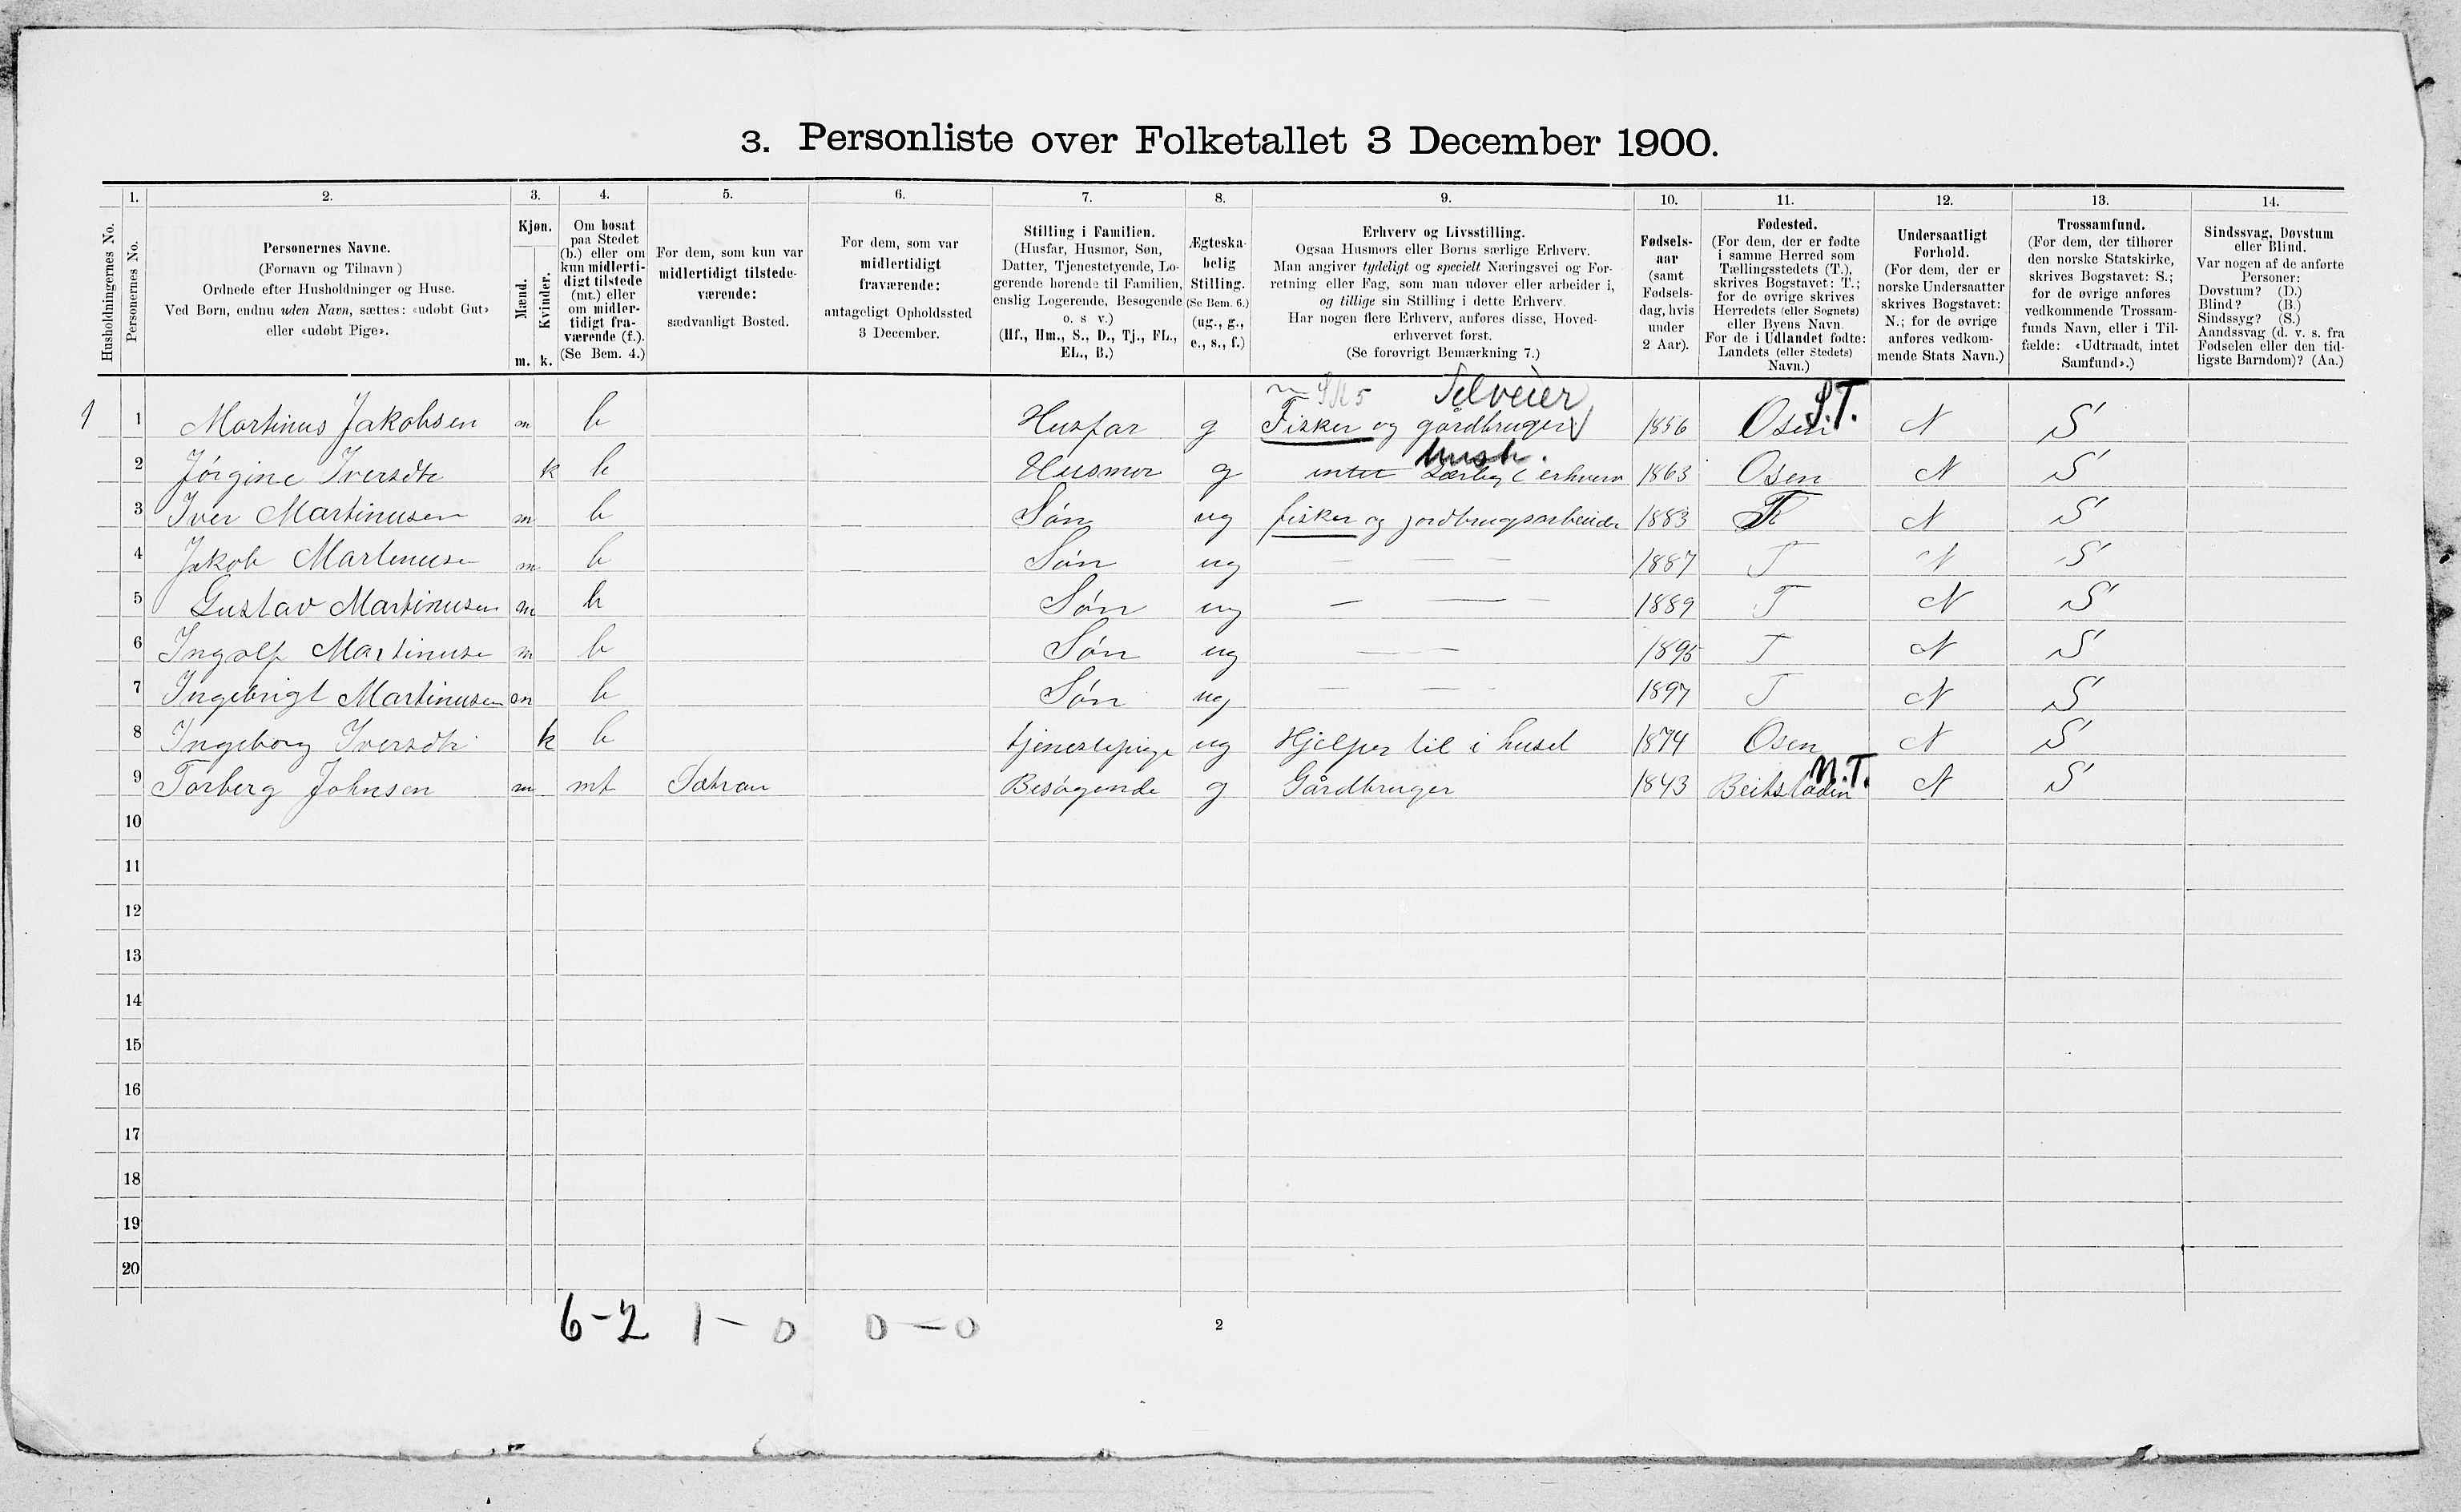 3. Personliste over Folketallet 3 December 1900.
1. 2. 3. 4. 5. 6. 7. 8. 9. 10. 11. 12. 13. 14.
Husholdningernes No.
Personernes No.
Personernes Navne.
(Fornavn og Tilnavn)
Ordnede efter Husholdninger og Huse.
Ved Børn, endnu uden Navn, sættes: «udøbt Gut»
eller «udøbt Pige».
Kjøn.
Mænd.
Kvinder.
m. k.
Om bosat
paa Stedet
(b.) eller om
kun midlerti-
digt tilstede
(mt.) eller
om midler-
tidigt fra-
værende (f.).
(Se Bem. 4.)
For dem, som kun var
midlertidigt tilstede-
værende:
sædvanligt Bosted.
For dem, som var
midlertidigt
fraværende:
antageligt Opholdssted
3 December.
Stilling i Familien.
(Husfar, Husmor, Søn,
Datter, Tjenestetyende, Lo-
gerende hørende til Familien,
enslig Logerende, Besøgende
o. s v.)
(Hf., Hm., S., D., Tj., FL.,
EL., B.)
Ægteska-
belig
Stilling.
(Se Bem. 6.)
(ug., g.,
e., s., f.)
Erhverv og Livsstilling.
Ogsaa Husmors eller Børns særlige Erhverv.
Man angiver tydeligt og specielt Næringsvei og For-
retning eller Fag, som man udøver eller arbeider i,
og tillige sin Stilling i dette Erhverv.
Har nogen flere Erhverv, anføres disse, Hoved-
erhvervet først.
(Se forøvrigt Bemærkning 7.)
Fødsels-
aar
(samt
Fødsels-
dag, hvis
under
2 Aar).
Fødested.
(For dem, der er fødte
i samme Herred som
Tællingsstedets (T.),
skrives Bogstavet: T.;
for de øvrige skrives
Herredets (eller Sognets)
eller Byens Navn.
For de i Udlandet fødte:
Landets (eller Stedets)
Navn.)
Undersaatligt
Forhold.
(For dem, der er
norske Undersaatter
skrives Bogstavet:
N.; for de øvrige
anføres vedkom-
mende Stats Navn.)
Trossamfund.
(For dem, der tilhører
den norske Statskirke,
skrives Bogstavet: S.;
for de øvrige anføres
vedkommende Trossam-
funds Navn, eller i Til-
fælde: «Udtraadt, intet
Samfund».)
Sindssvag, Døvstum
eller Blind.
Var nogen af de anførte
Personer:
Døvstum? (D.)
Blind? (B.)
Sindssyg? (S.)
Aandssvag (d. v. s. fra
Fødselen eller den tid-
ligste Barndom)? (Aa.)
Selveier S.T.
1 1 Martinus Jakobsen m b Husfar g Fisker og gårdbruger 1856 Osen N S
hush.
2 Jørgine Iversdtr k b Husmor g intet særligt erhverv 1863 Osen N S
3 Iver Martinusen m b Søn ug fisker og jordbrugsarbeider 1883 T N S
4 Jakob Martinusen m b Søn ug — — — 1887 T N S
5 Gustav Martinusen m b Søn ug — — — 1889 T N S
6 Ingolf Martinusen m b Søn ug — — — 1895 T N S
7 Ingebrigt Martinusen m b Søn ug — — — 1897 T N S
8 Ingeborg Iversdtr k b tjenestepige ug Hjelper til i huset 1874 Osen N S
N.T.
9 Torberg Johnsen m mt Sætran Besøgende g Gårdbruger 1843 Beitstaden N S
10
11
12
13
14
15
16
17
18
19
20
6-2 1-0 0-0
2